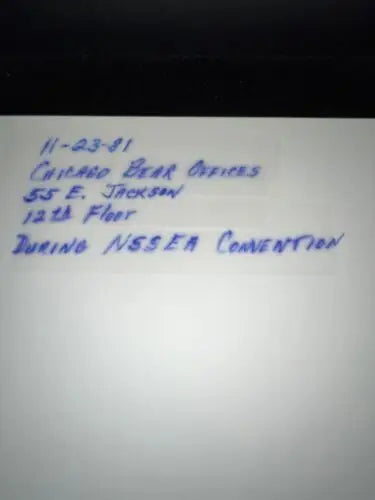 11-23-81
CHICAGO BEAR OFFICES
55 E. JACKSON
12th FLOOR
DURING NSSEA CONVENTION